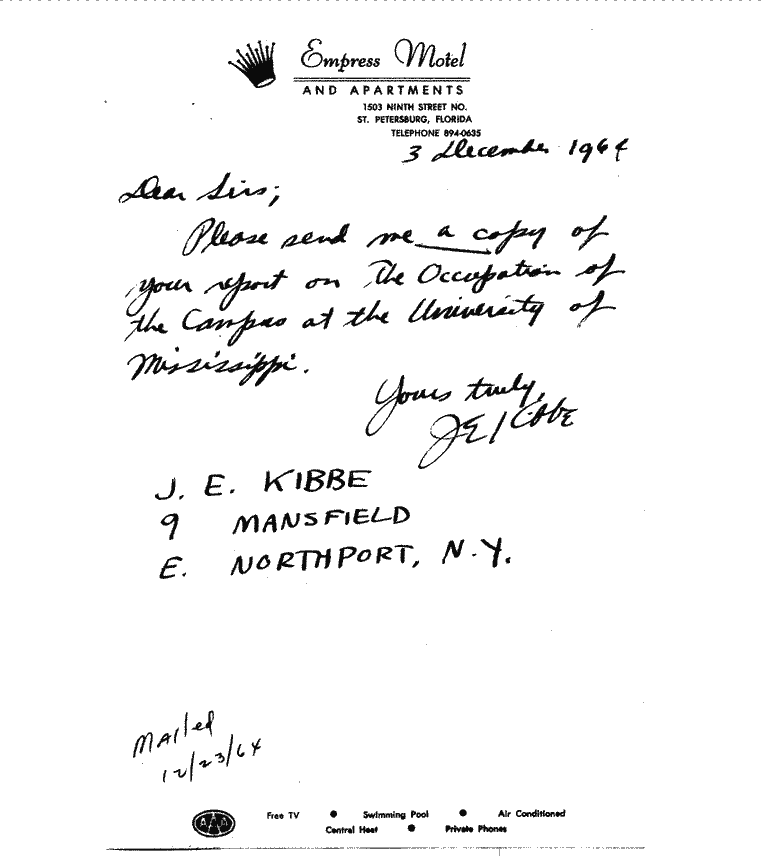 Empress Motel
AND APARTMENTS
1503 NINTH STREET NO.
ST. PETERSBURG, FLORIDA
TELEPHONE 894-0635
3 December 1964
Dear Sirs;
Please send me a copy of
your report on The Occupation of
the Campas at the University of
Mississippi.
Yours truly,
JE Kibbe
J. E. KIBBE
9 MANSFIELD
E. NORTHPORT, N.Y.
Mailed
12/23/64
AAA
Free TV ● Swimming Pool ● Air Conditioned
Central Heat ● Private Phones